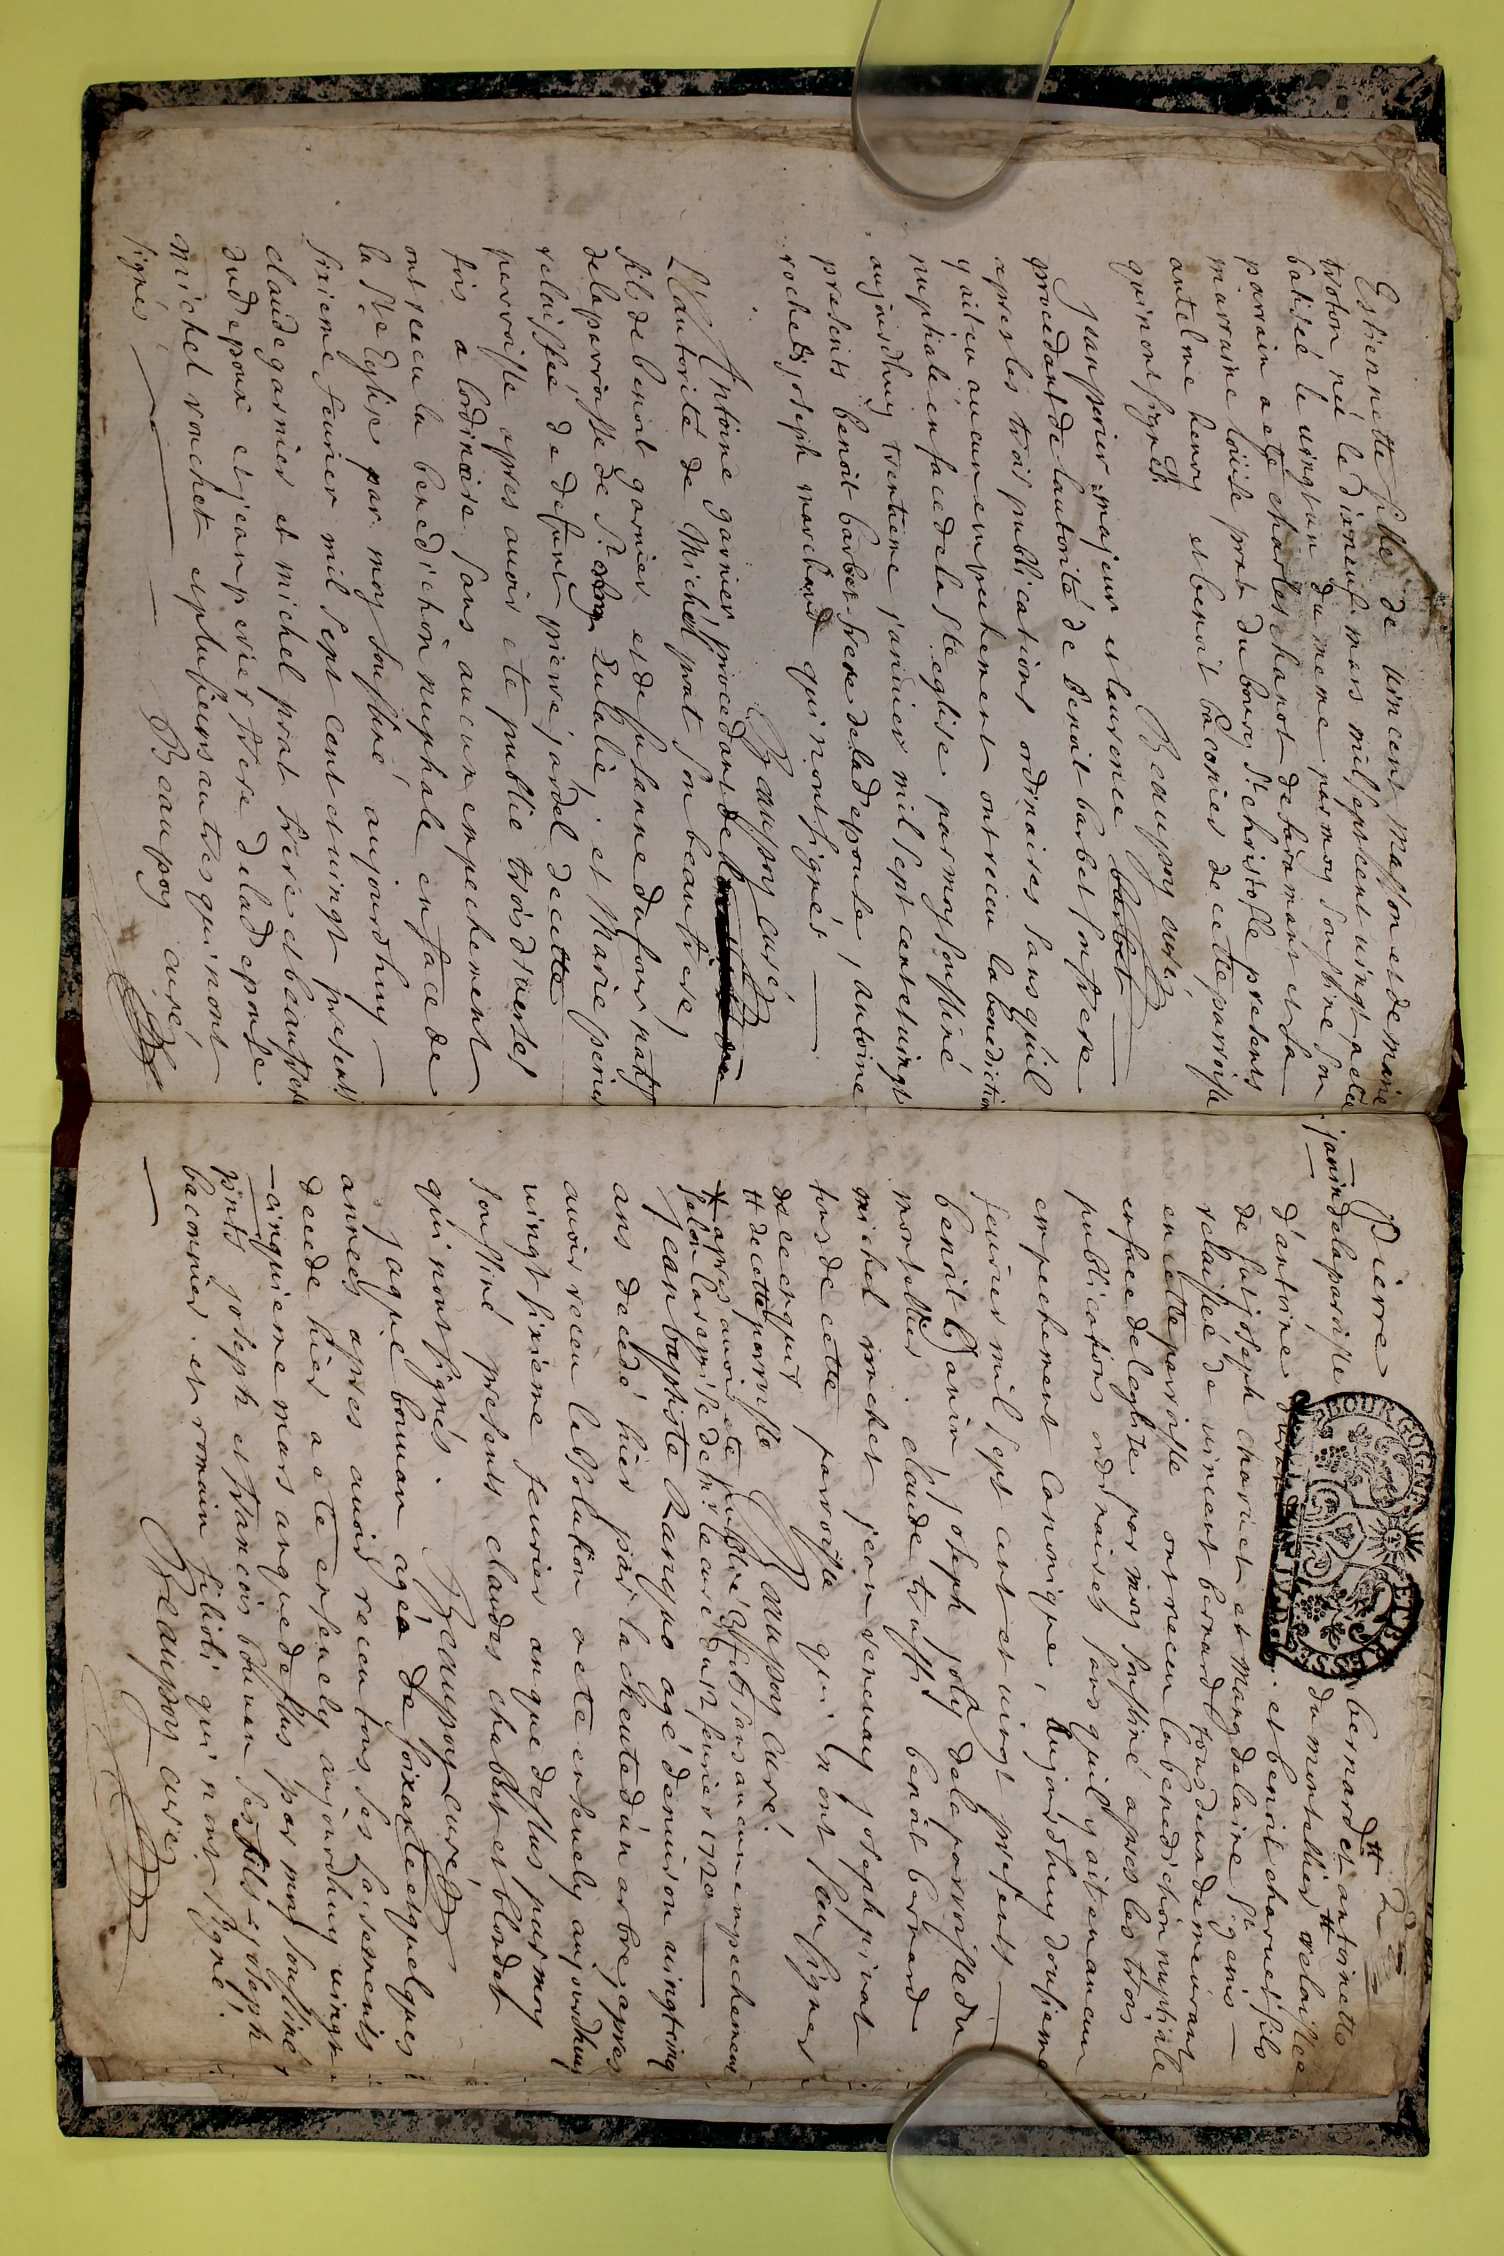 Estiennette fille de vincent masson et de marie
troton née le dixneuf mars mil sept cent vingt a eté
batiseé le vingt un du meme par moy soussiné son
parrain a eté charles chanot de faramans et sa
marraine louise prat du bourg St christofle presents
antelme henry et benoit baconier de cette parroisse
qui n'ont signés
Beaupoy curé
Juan perier majeur et laurence barbet
procedant de lautorité de benoit barbet son frere
apres les trois publications ordinaires sans qu'il
y ait eu aucun empechement ont receu la benediction
nuptiale en face de la ste eglise par moy soussiné
aujourdhuy trentieme janvier mil sept cent et vingt
presents benoit barbet frere de lad epouse, antoine
rochet, joseph marchand qui n'ont signés
Beaupoy curé
Antoine garnier, procedant de
L'autorité de Michel prat son beaufrere,
fils de benoit garnier et de susanne dufour natif
de la parroisse de Ste Eulalie, et Marie perier
relaisseé de defunt pierre jardel de cette
perroisse apres avoir ete publié trois diverses
fois a lordinaire sans aucun empechement
ont receu la benediction nuptiale en face de
la Ste Eglise par moy soussiné aujourdhuy
sixieme feurier mil sept cent et vingt presents
claude garnier et michel prat frere et beaufrere
dud epoux et jean perier frere de lad epouse
michel rochet et plusieurs autres qui n'ont
signés
Beaupoy curé
2
Pierre bernard et antoinette
janin de la parroisse du montellier relaissee
d'antoine et benoit charvet fils
de fut joseph charvet et marg delaine
relaisseé de vincent bernard tous deux demeurant
en cette parroisse ont receu la benediction nuptiale
enface de leglise par moy soussiné apres les trois
publications ordinaires sans quil y ait eu aucun
empechement canonique, aujourdhuy dousieme
feurier mil sept cent et vingt presents
benoit janin, joseph joly de la parroisse du
montellier. claude truffi benoit bernard
michel rochet jean venenay joseph pivat
tous de cette parroisse qui n'ont sceu signer
de ce enquis
tt de cette parroisse Beaupoy curé.
# apres avoir ete publié 3 fois sans aucun empechement
selon la remise de mr le curé du 12 feurier 1720
Jean baptiste agé denuiron vingt cinq
ans decedé hier par la cheute d'un arbre, apres
auoir receu labsolution a ete ensevely aujourdhuy
vingt sixieme feurier an que dessus par moy
soussiné presents claudes chabut et blondet
qui n'ont signés. Beaupoy curé
Jaque bouvan agée de soixante et quelques
années apres auoir receu tous ses sacrements
decede hier a ete ensevely aujourdhuy vingt
cinquieme mars an que dessus par moy soussiné,
pnts joseph et francois bouvan ses fils, joseph
baconnier et romain filioli qui n'ont signé.
Beaupoy curé